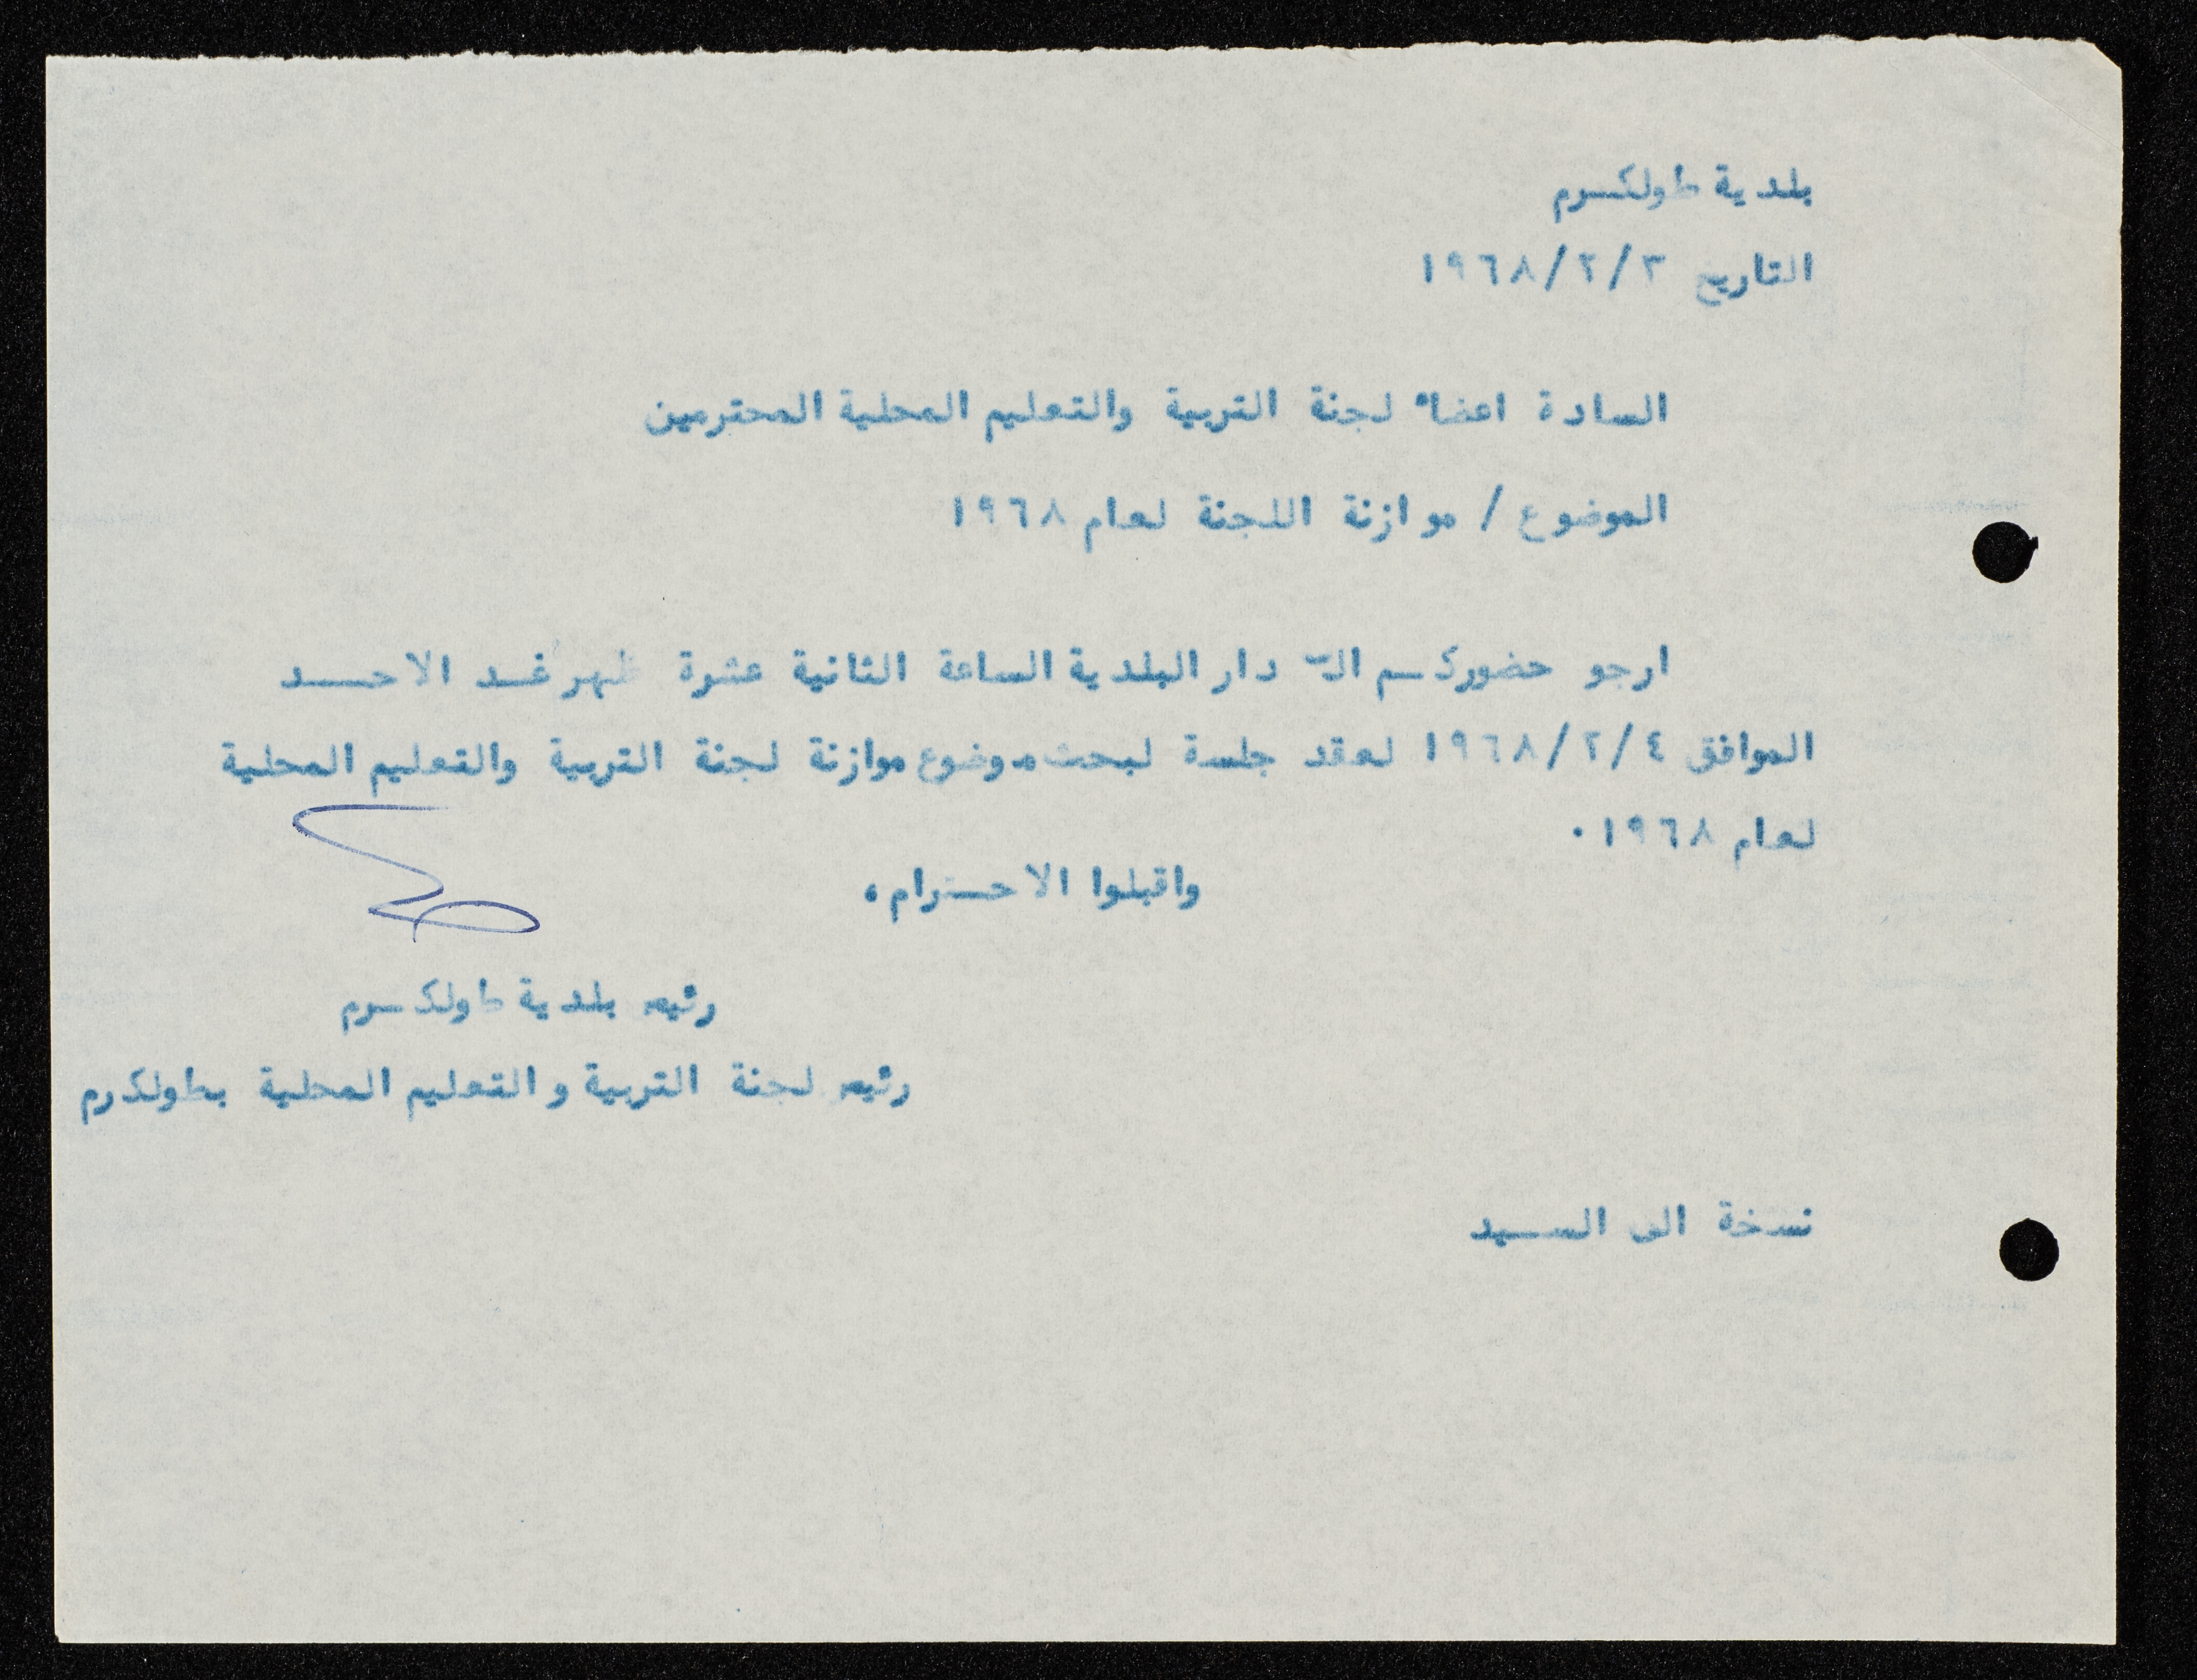 بلدية طولكرم
التاريخ ١٩٦٨/٢/٣
السادة اعضاء لجنة التربية والتعليم المحلية المحترمين
الموضوع / موازنة اللجنة لعام ١٩٦٨
ارجو حضوركم الى دار البلدية الساعة الثانية عشرة ظهر غد الاحد
الموافق ١٩٦٨/٢/٤ لعقد جلسة لبحث موضوع موازنة لجنة التربية والتعليم المحلية
لعام ١٩٦٨ .
واقبلوا الاحترام،
رئيس بلدية طولكرم
رئيس لجنة التربية والتعليم المحلية بطولكرم
نسخة الى السيد